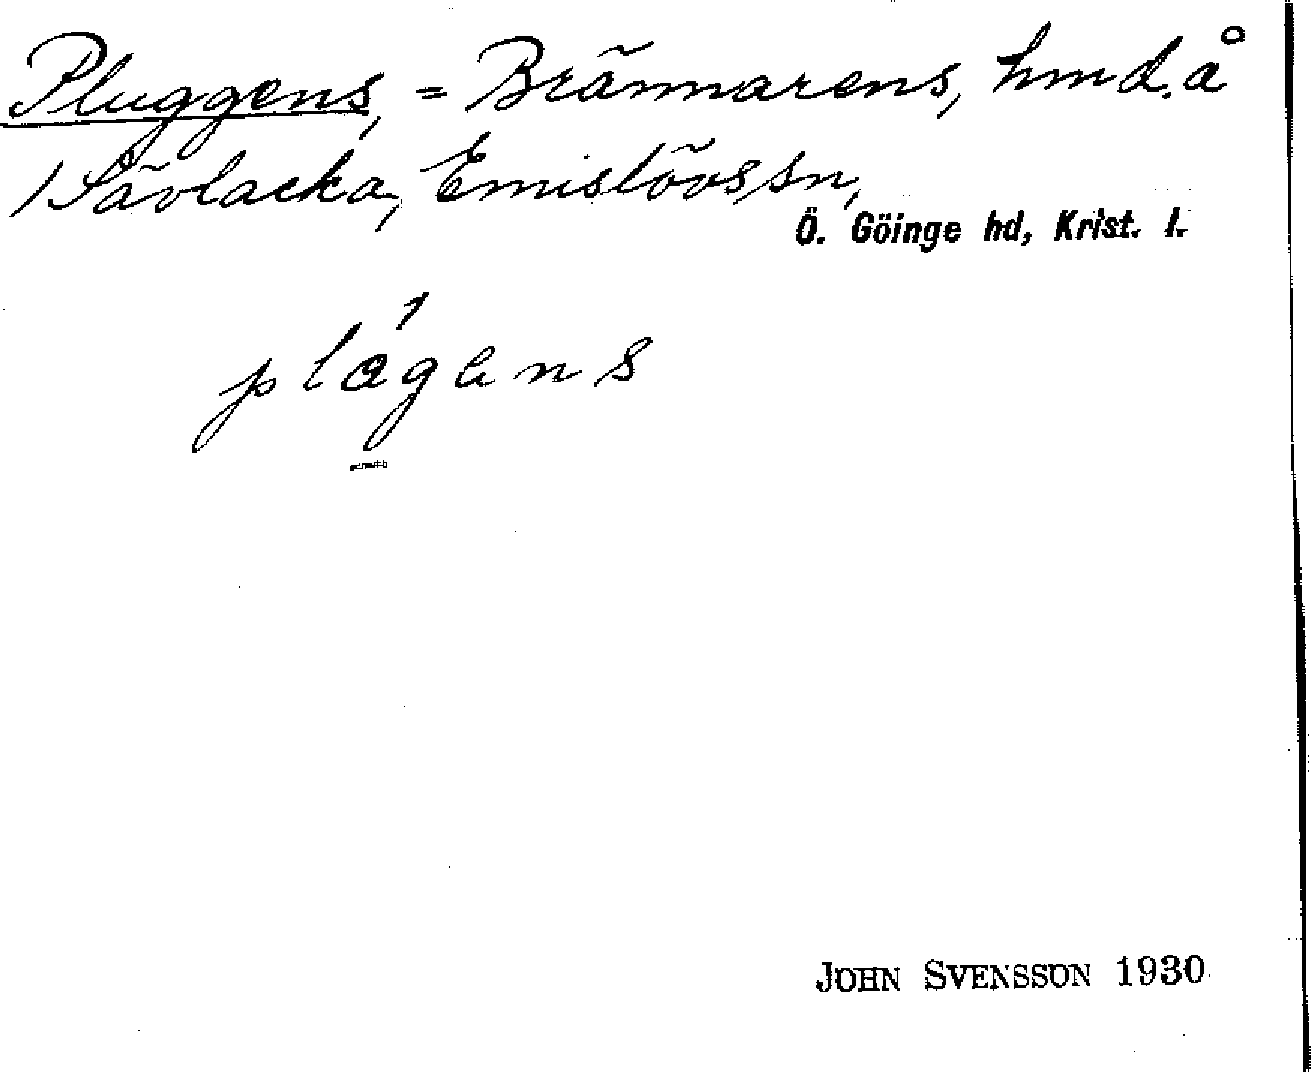 Pluggens, = Brännarens, hmd. å
1 Sävlacka, Emislövs sn,
Ö. Göinge hd, Krist. l.
plágens
JOHN SVENSSON 1930